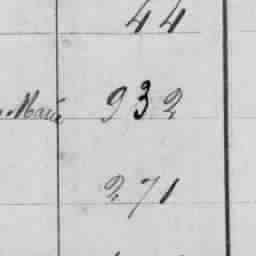 44
Marie 932
271